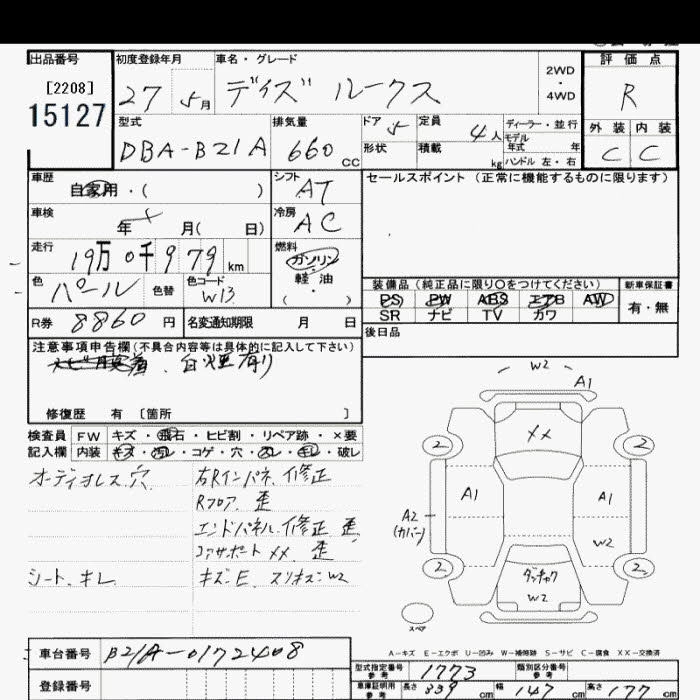 出品番号
[2208]
15127
初度登録年月
27 5月
車名・グレード
デイズ ルークス
2WD
・
4WD
評価点
R
外装 内装
C C
型式
DBA-B21A
排気量
660 CC
ドア 5
形状
定員
4人
積載
kg
ディーラー・並行
モデル
年式 年
ハンドル 左・右
車歴
自家用・( )
シフト
AT
車検
年 月( 日)
冷房
AC
走行
19万0千979km
燃料
ガソリン
軽・油
( ・ )
色
パール
色替
色コード
W13
R券 8860円
名変通知期限 月 日
セールスポイント (正常に機能するものに限ります)
装備品 (純正品に限り○をつけてください)
PS PW ABS エアB AW
SR ナビ TV カワ
新車保証書
有・無
後日品
注意事項申告欄(不具合内容等は具体的に記入して下さい)
白煙有り
修復歴 有 [箇所 ]
検査員 FW キズ・飛石・ヒビ割・リペア跡・×要
記入欄 内装 キズ・汚レ・コゲ・穴・スレ・キレ・破レ
オーディオレス.穴.
右Rインパネ.修正
Rフロア.歪
エンドパネル.修正 歪.
コアサポート XX 歪
シート.キレ
キズ.E.スリキズ.W2
W2
A1
XX
2 2
A1 A1
A2
(カバー)
W2
2 2
ダッチャク
W2
スペア
A-キズ E-エクボ U-凹み W-補修跡 S-サビ C-腐食 XX-交換済
車台番号 B21A-0172408
登録番号
型式指定番号
参考
1773
類別区分番号
参考
車庫証明用
参考
長さ 339cm 幅 147cm 高さ 177cm